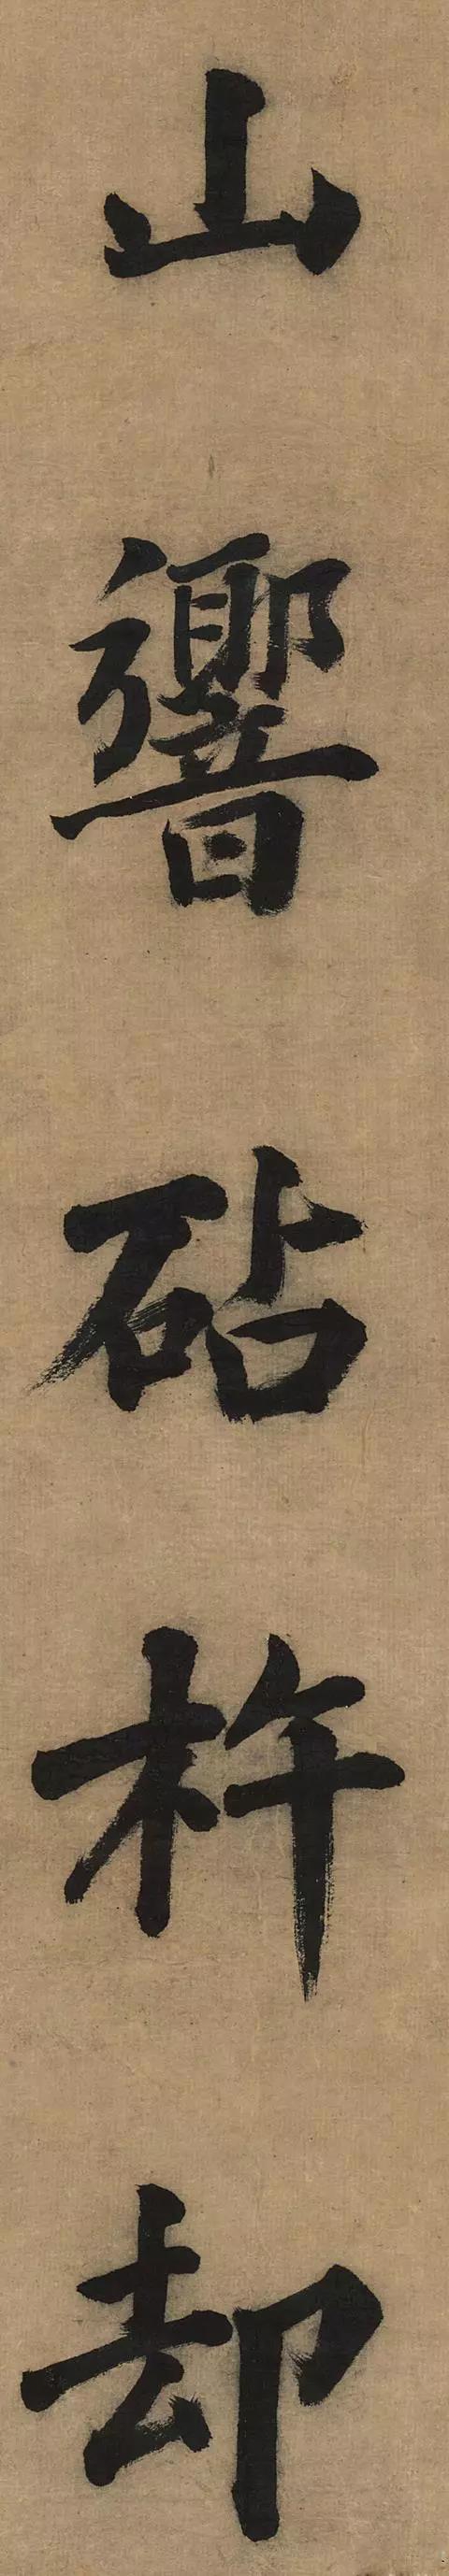 山響砧杵却